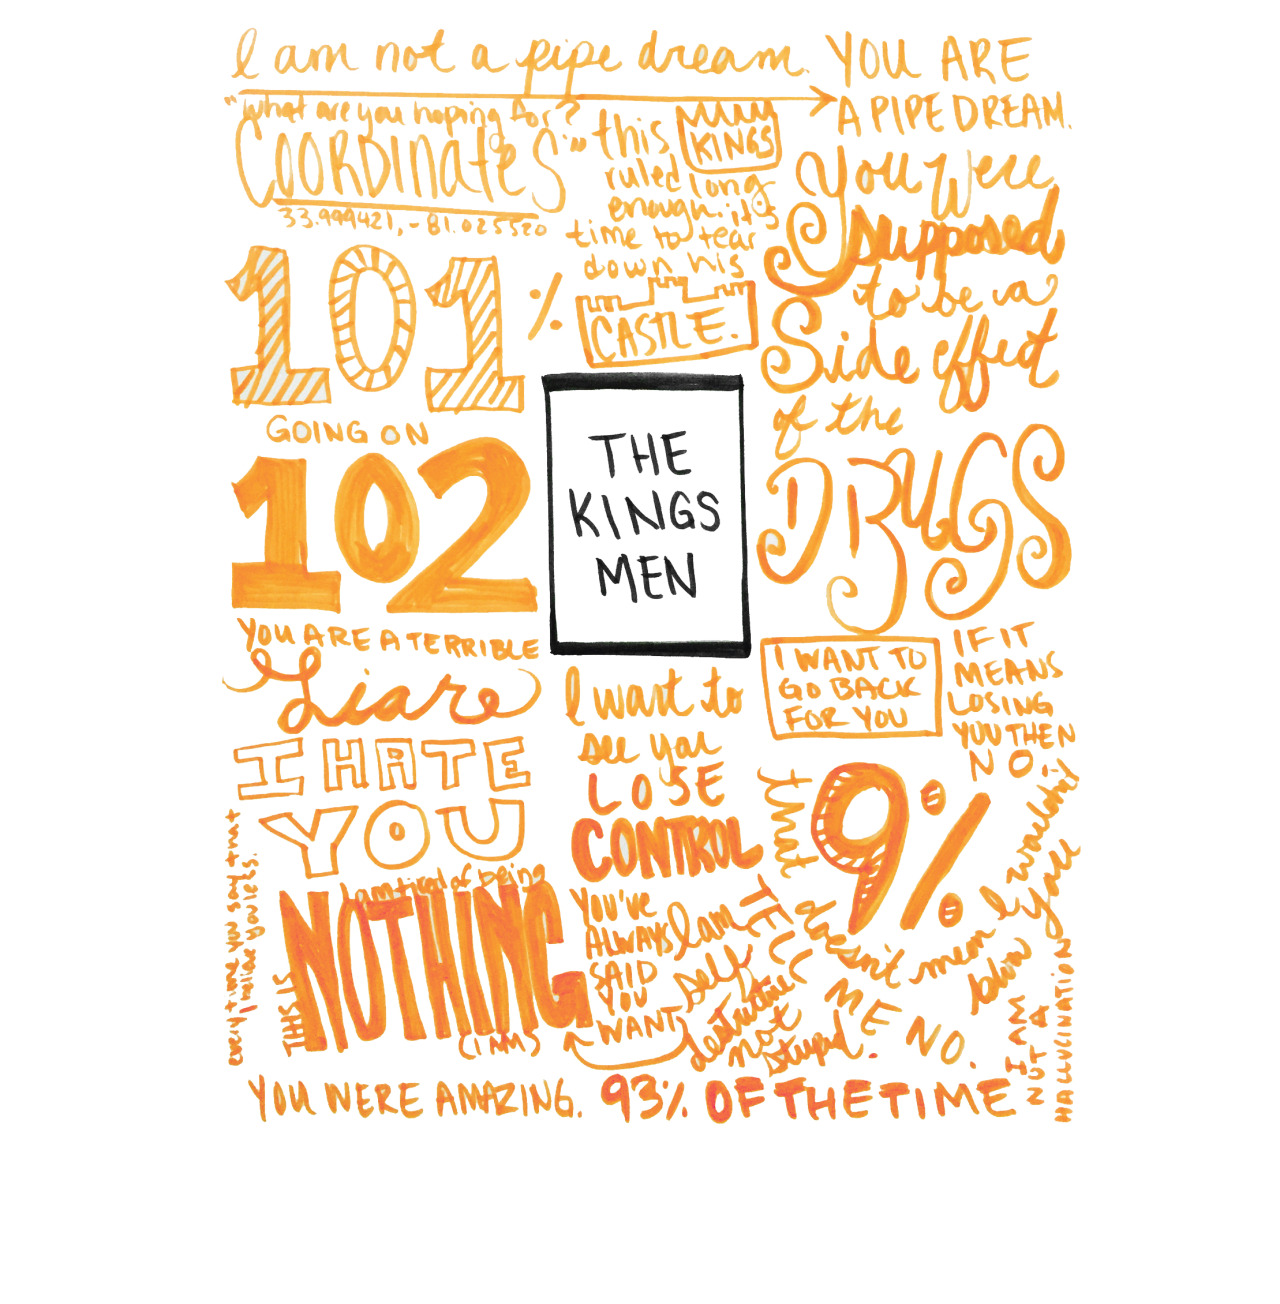 I am not a pipe dream.
YOU ARE
A PIPE DREAM.
"what are you hoping for?
COORDINATES"
33.999421, -81.025520
this KINGS
ruled long
enough. it's
time to tear
down his
CASTLE.
You were
supposed
to be a
Side effect
of the
DRUGS
101%
GOING ON
102
THE
KINGS
MEN
YOU ARE A TERRIBLE
Liar
I HATE
YOU
every time you say that
I believe you less.
I am tired of being
NOTHING
THIS IS
I want to
see you
LOSE
CONTROL
I WANT TO
GO BACK
FOR YOU
IF IT
MEANS
LOSING
YOU THEN
NO
that
9%
doesn't mean
I wouldn't
blow
you
YOU'VE
ALWAYS
SAID
YOU
WANT
I am
self
destructive
not
stupid.
TELL
ME NO.
I AM
NOT A
HALLUCINATION
YOU WERE AMAZING.
93% OF THE TIME